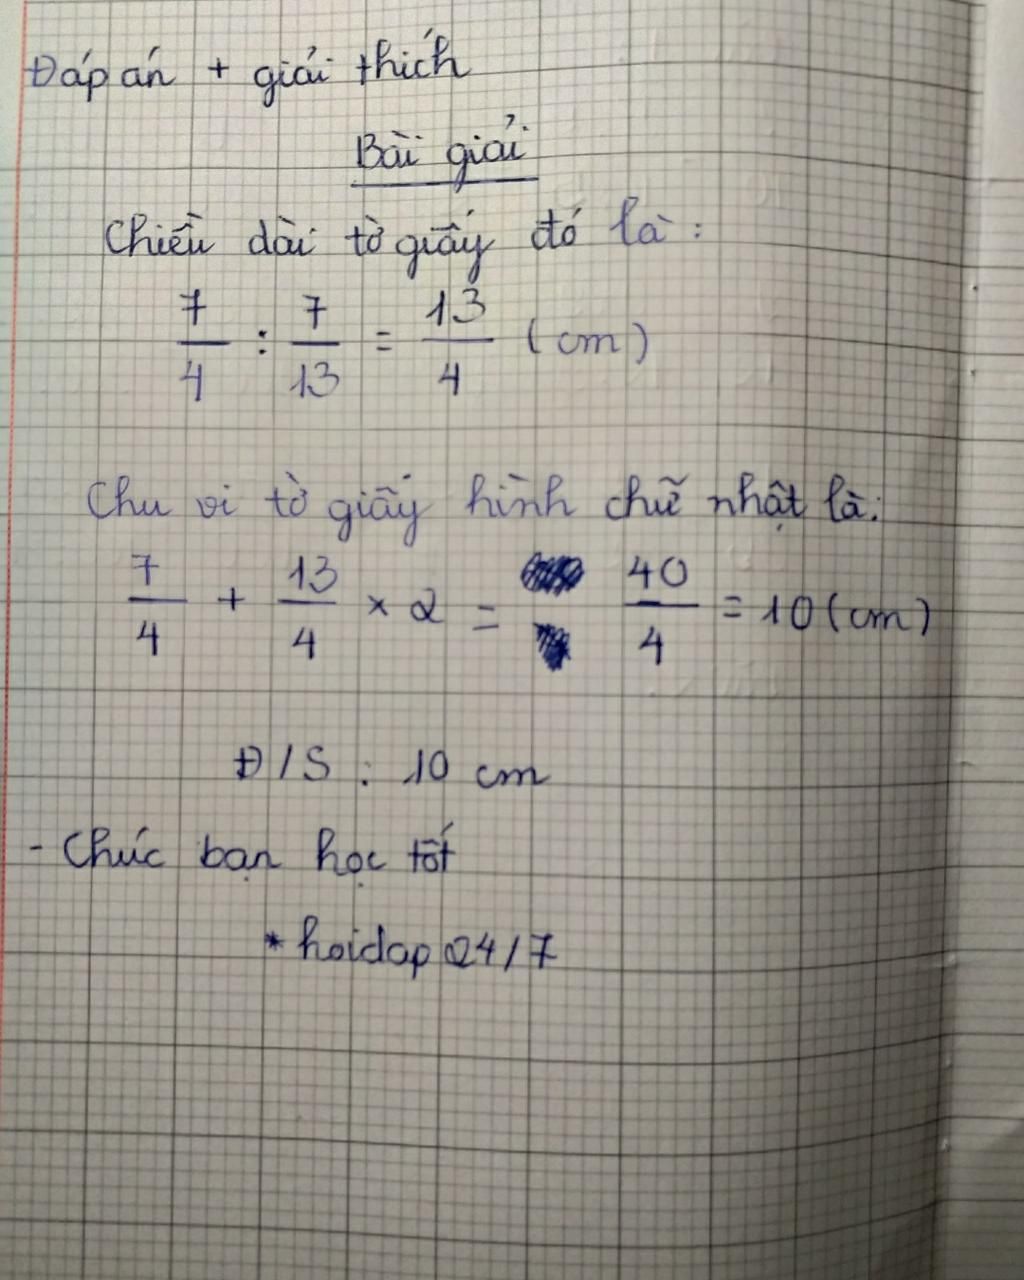 Đáp án + giải thích
Bài giải
Chiều dài tờ giấy đó là :
7/4 : 7/13 = 13/4 (cm)
Chu vi tờ giấy hình chữ nhật là:
7/4 + 13/4 × 2 = 40/4 = 10 (cm)
Đ/S : 10 cm
- Chúc bạn học tốt
* hoidap 24/7